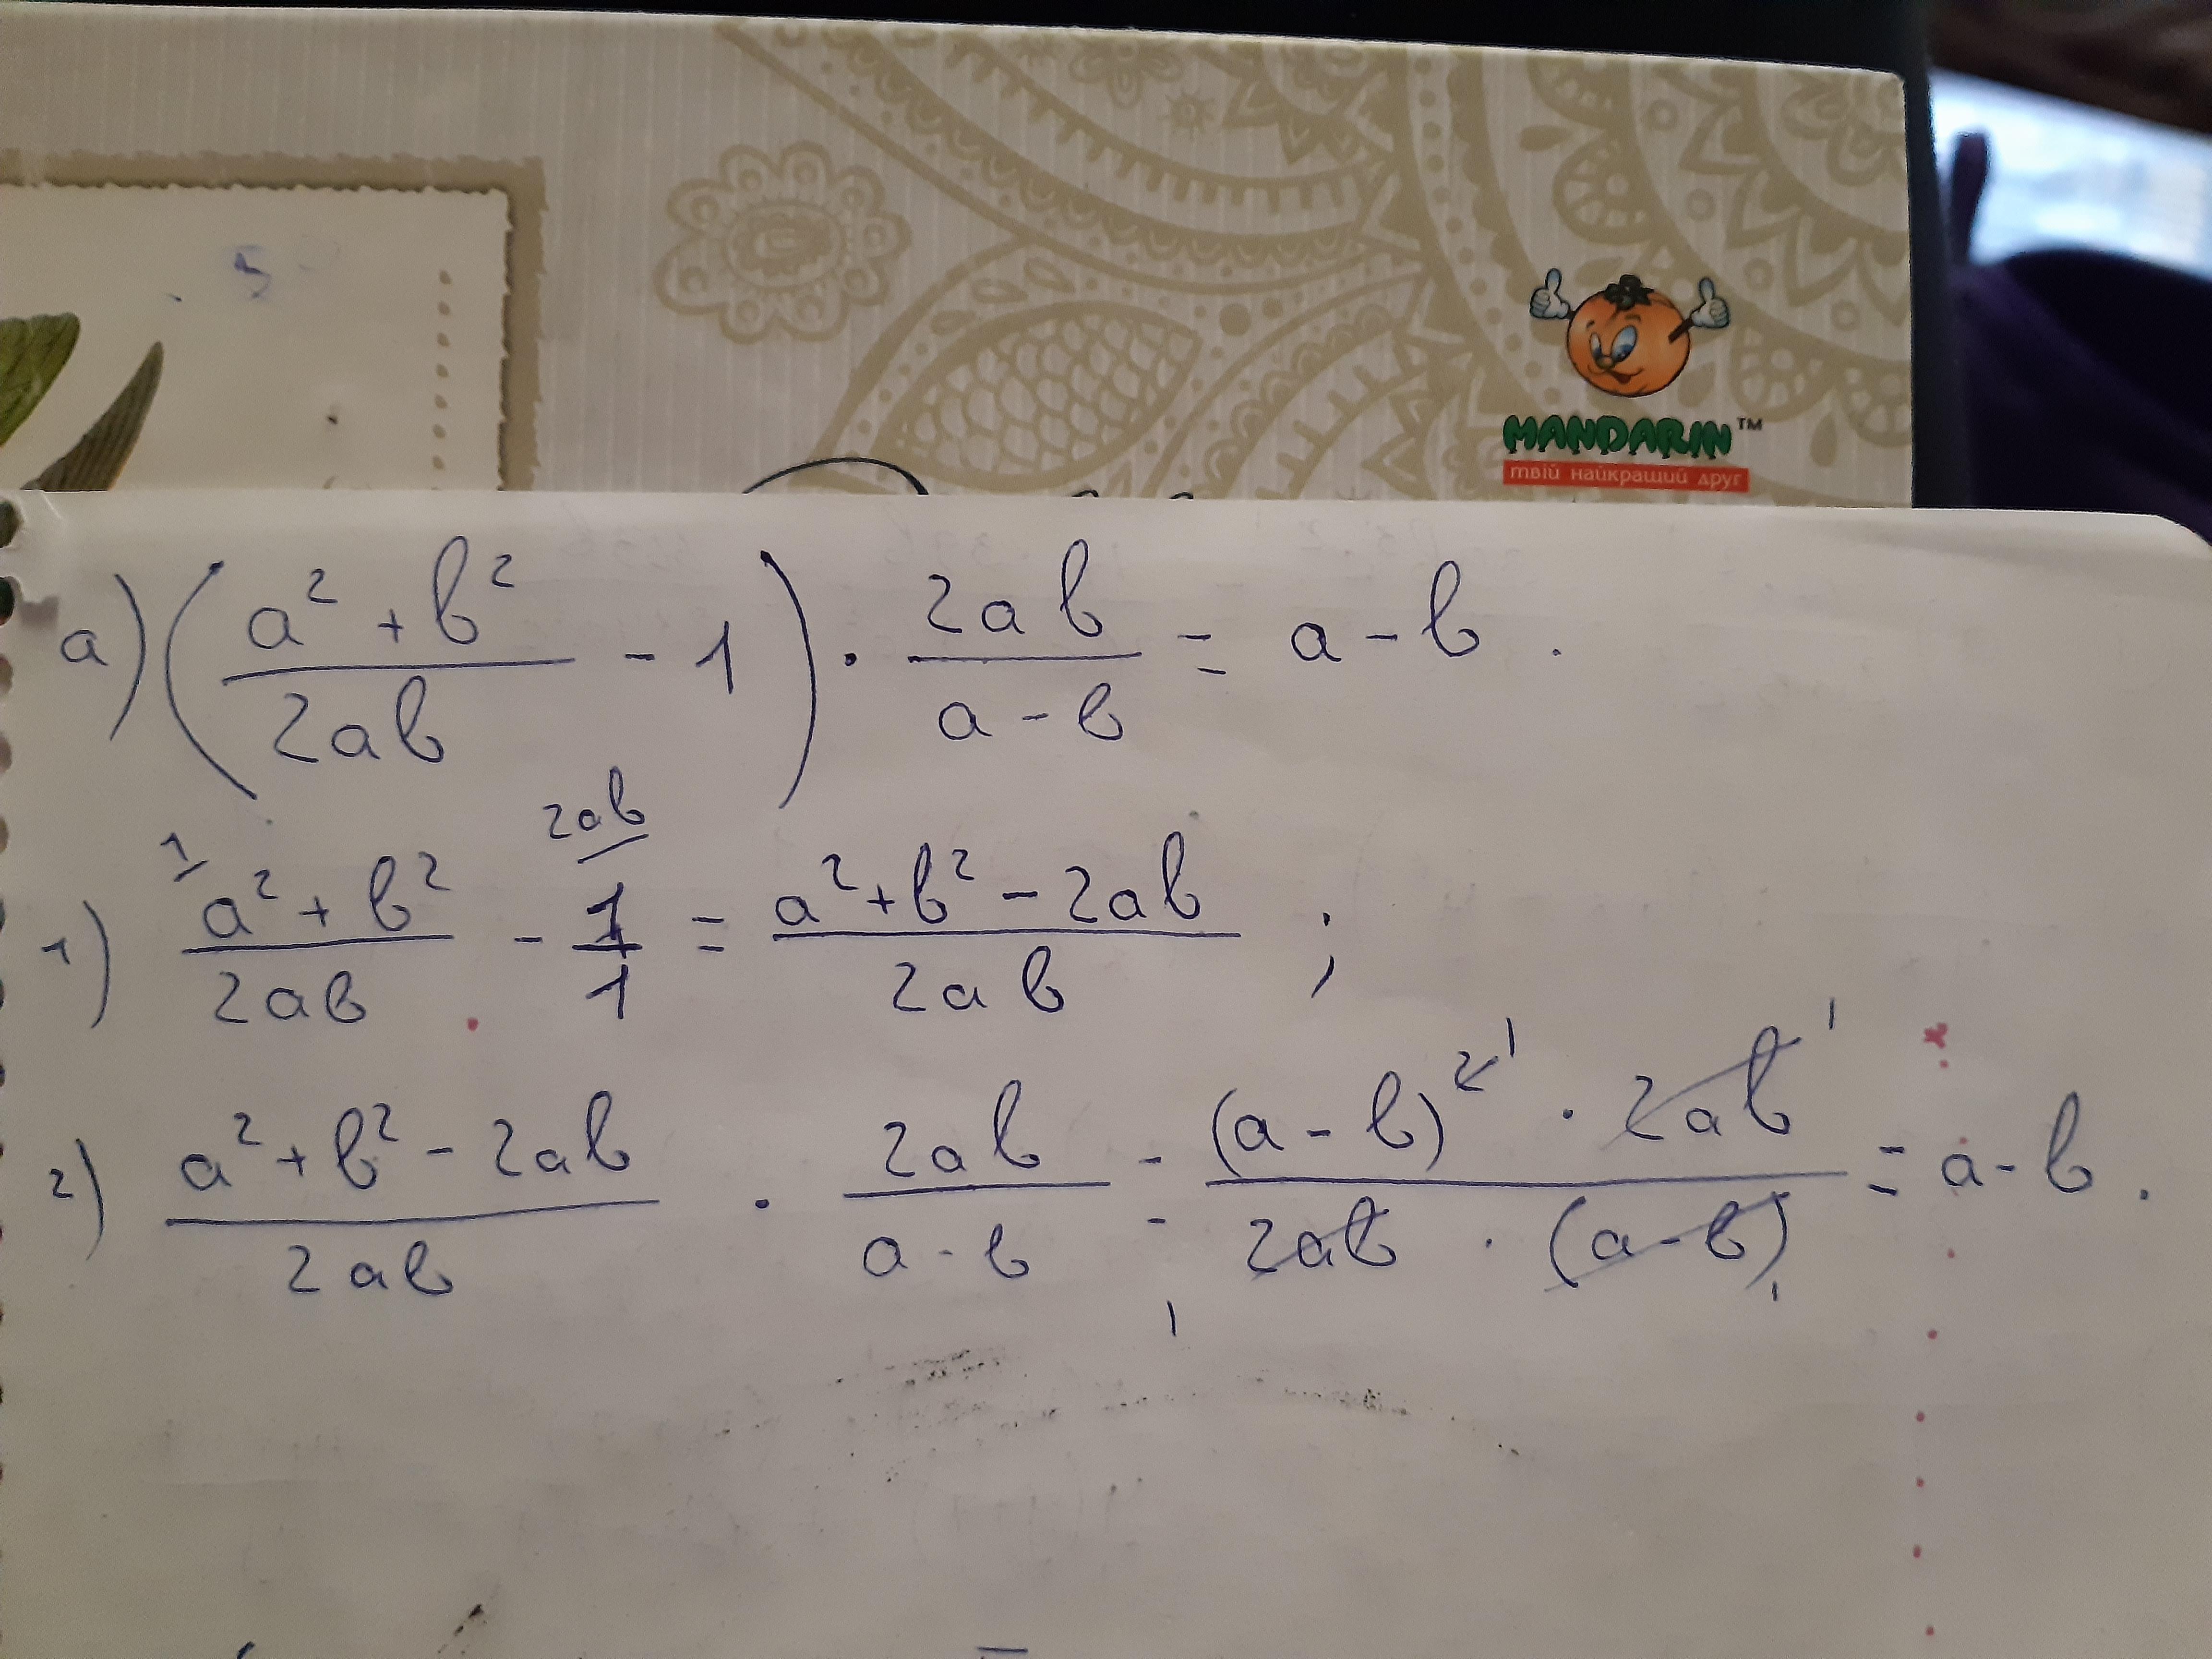 5
MANDARIN™
твій найкращий друг
а) ( (a² + b²) / (2ab) - 1 ) · (2ab) / (a - b) = a - b .
1) ¹⁄ (a² + b²) / (2ab) - ²ᵃᵇ⁄ 1/1 = (a² + b² - 2ab) / (2ab) ;
2) (a² + b² - 2ab) / (2ab) · (2ab) / (a - b) = ((a - b)² ¹ · 2ab ¹) / (2ab · (a - b) ₁) = a - b .